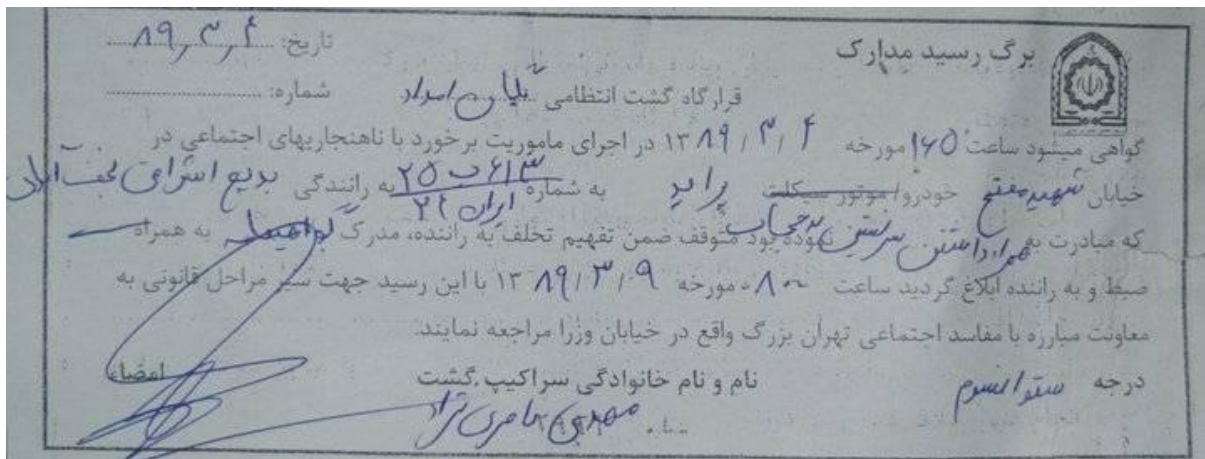 برگ رسید مدارک
تاریخ: ۸۹٫۳٫۴
قرارگاه گشت انتظامی امداد
شماره:
گواهی میشود ساعت ۱۶۵۰ مورخه ۱۳۸۹/۳/۴ در اجرای ماموریت برخورد با ناهنجاریهای اجتماعی در
خیابان شهید مفتح خودرو/موتور سیکلت پراید به شماره ۶۱۳ ب ۲۵ ایران ۲۱ به رانندگی بدیع اشراقی نجف آبادی
که مبادرت به همراه داشتن سرنشین بدحجاب نموده بود متوقف ضمن تفهیم تخلف به راننده، مدرک گواهینامه به همراه
ضبط و به راننده ابلاغ گردید ساعت ۰۸۰۰ مورخه ۱۳۸۹/۳/۹ با این رسید جهت سیر مراحل قانونی به
معاونت مبارزه با مفاسد اجتماعی تهران بزرگ واقع در خیابان وزرا مراجعه نمایند.
درجه ستوانسوم نام و نام خانوادگی سراکیپ گشت امضاء
مهدی